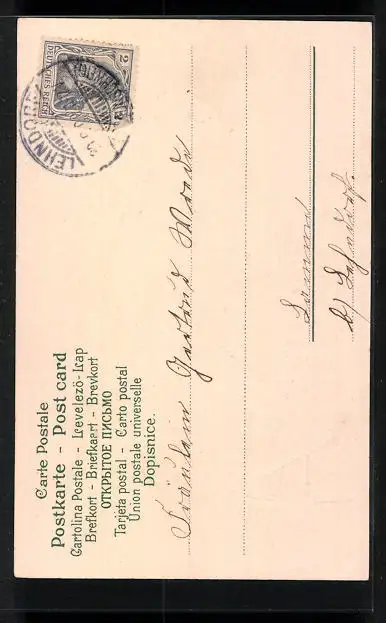 Carte Postale
Postkarte - Post card
Cartolina Postale - Levelező-Lap
Brefkort - Briefkaart - Brevkort
ОТКРЫТОЕ ПИСЬМО
Tarjeta postal - Carto postal
Union postale universelle
Dopisnice.
2
DEUTSCHES REICH
2
LEHNDORF
Fräulein Gertrud
b/ Lehndorf.